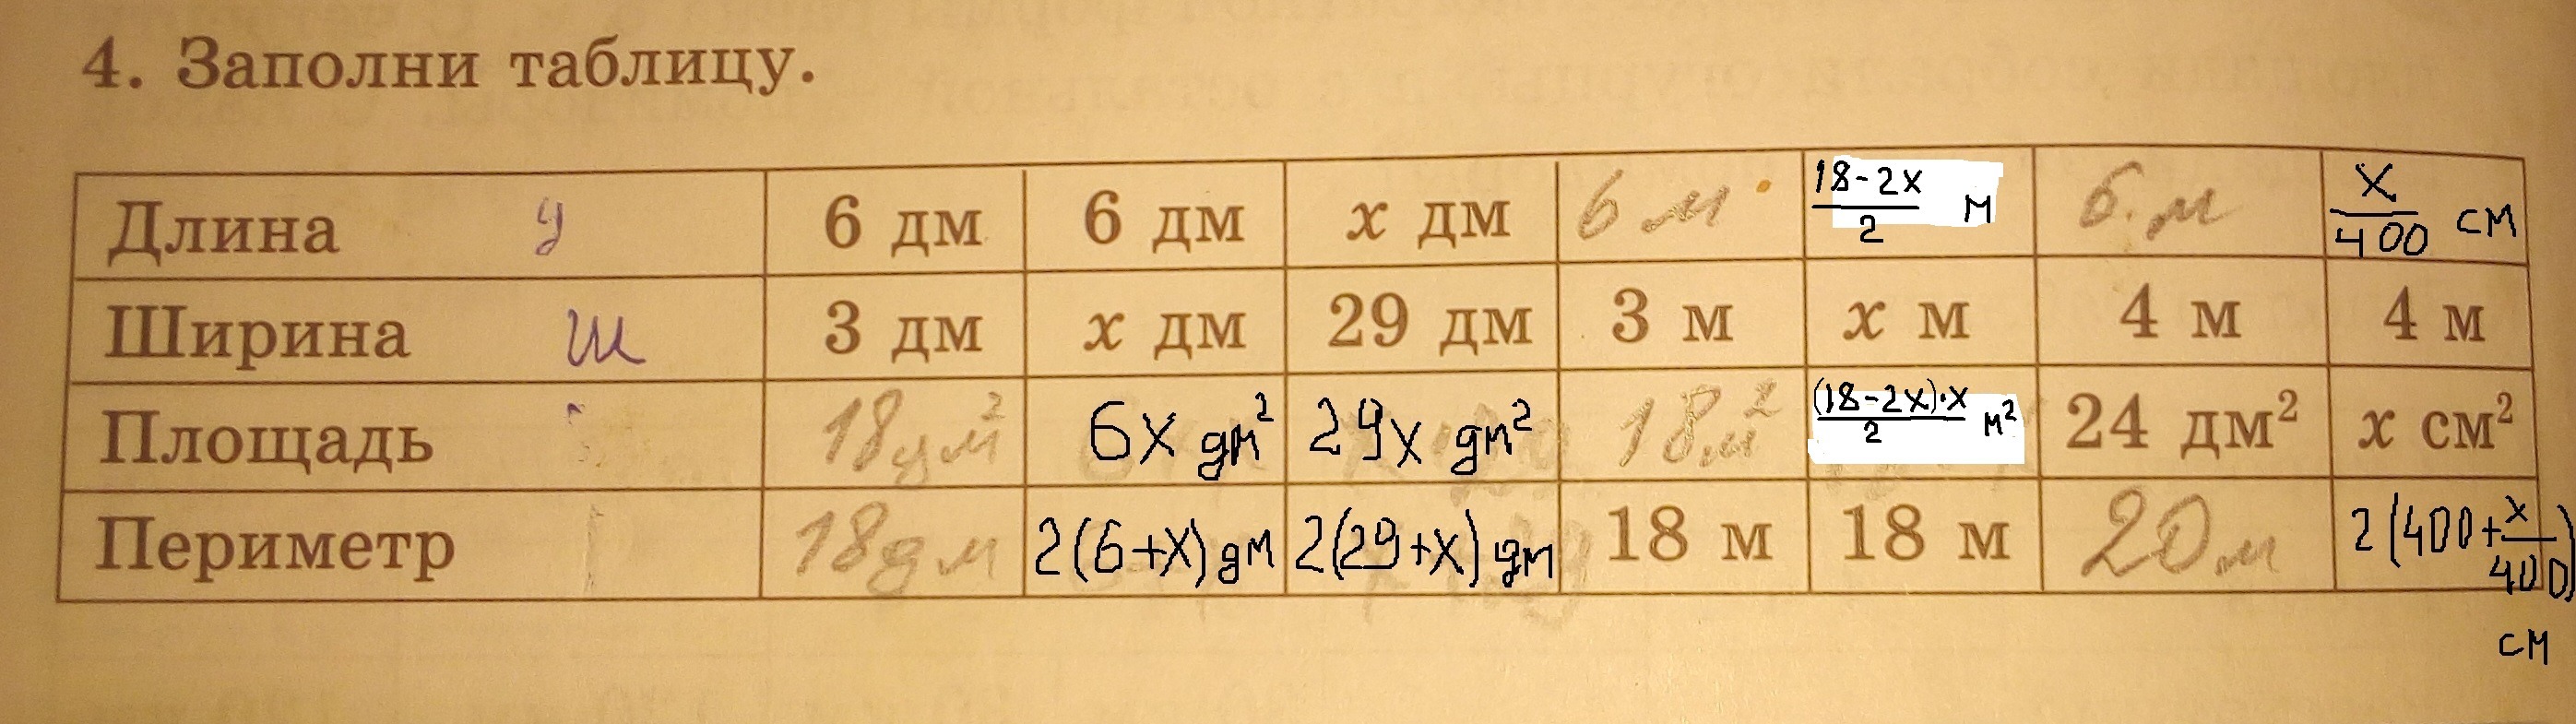 4. Заполни таблицу.
Длина у 6 дм 6 дм x дм 6 м 18-2x/2 м 6 м x/400 см
Ширина ш 3 дм x дм 29 дм 3 м x м 4 м 4 м
Площадь 18 дм² 6x дм² 29x дм² 18 м² (18-2x)·x/2 м² 24 дм² x см²
Периметр 18 дм 2(6+x) дм 2(29+x) дм 18 м 18 м 20 м 2(400+x/400)
см